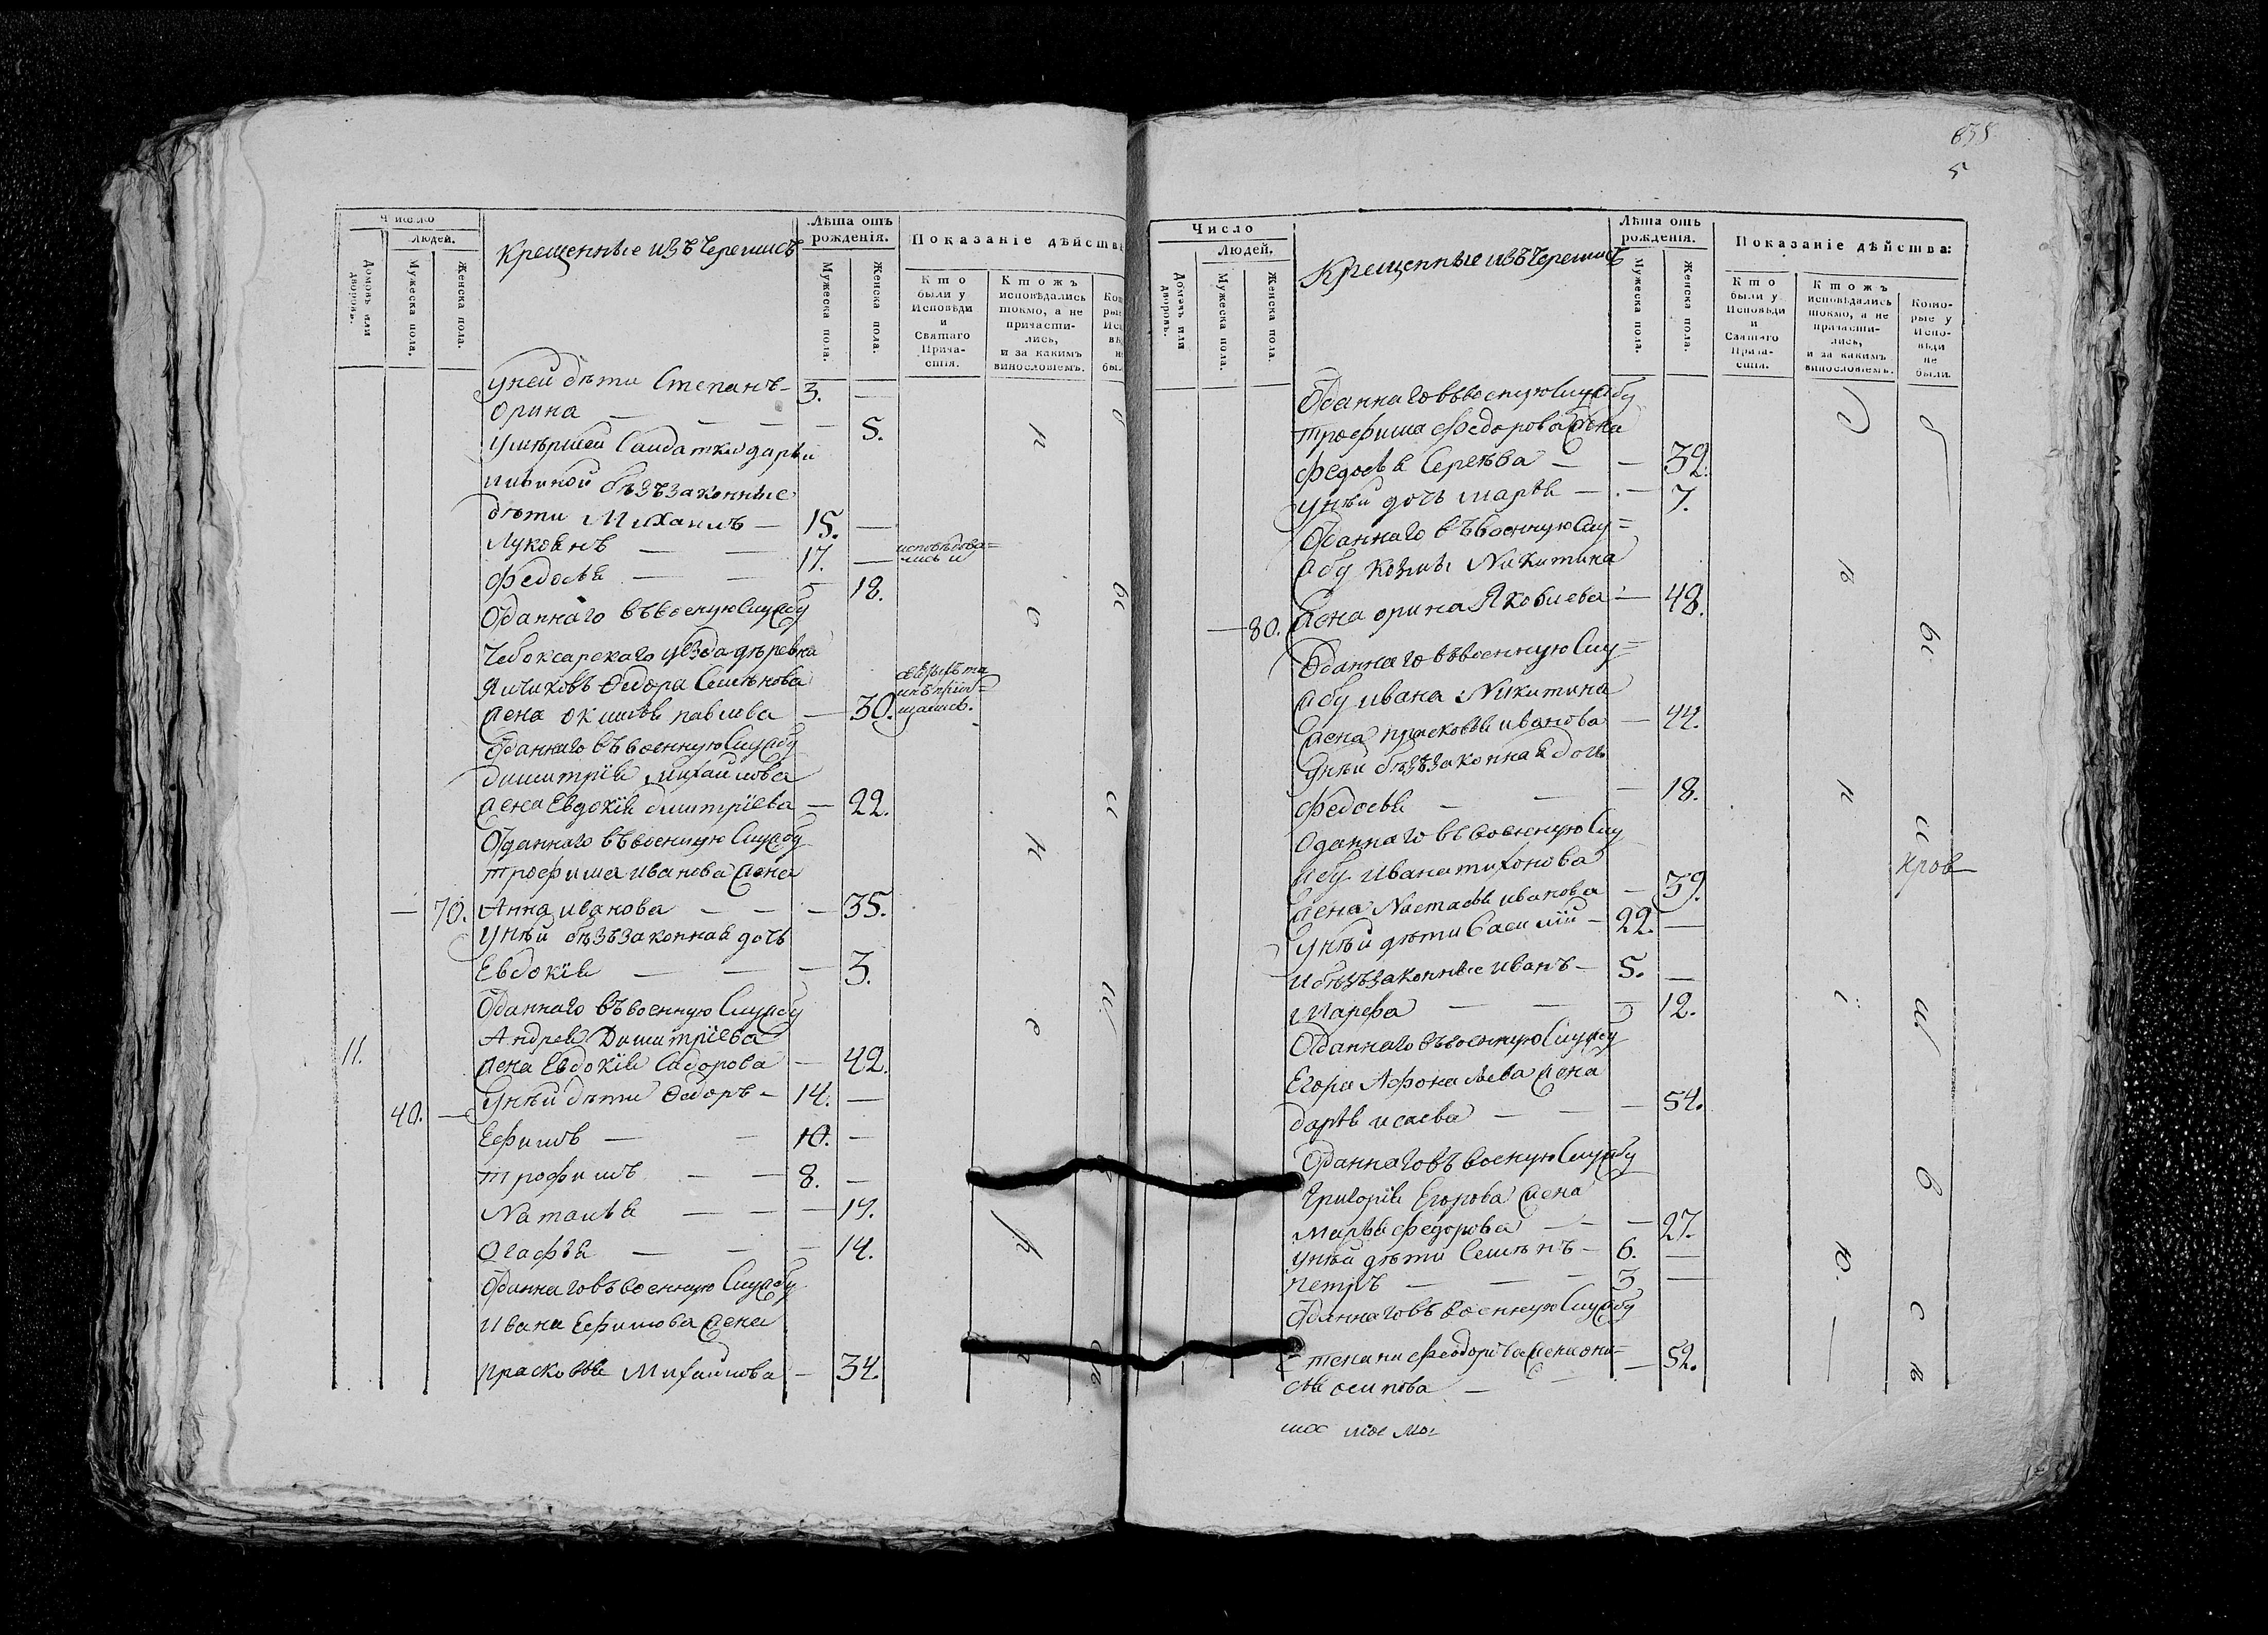 Число
Людей.
Домовъ или дворовъ.
Мужеска пола.
Женска пола.
Крещенные изъ Черемисъ
Лѣта отъ рожденія.
Мужеска пола.
Женска пола.
Показаніе дѣйства
Кто были у Исповѣди и Святаго Прича-стія.
Ктожъ исповѣдались токмо, а не причасти-лись, и за какимъ винословіемъ.
уней дѣти Степанъ — 3. —
Орина — — — 5.
умѣршей Салдатки дарьи
ильиной бѣзъзаконные
дѣти Михаилъ — 15. —
Лукоянъ — — 17. —
исповѣдова=
лись и
Федосья — — 18.
Отданнаго въ военую Службу
Чебоксарскаго уѣзда дѣревни
Яшиковъ Ѳедора Семѣнова
жена окилья павлова — 30.
Отданнаго въ военную Службу
димитрія Михаилова
жена Евдокія дмитріева — 22.
Отданнаго въ военную Службу
трофима иванова жена
— 70. Анна иванова — — — 35.
унѣй бѣзъзаконная дочь
Евдокія — — — 3.
Отданнаго въ военную Службу
11. Андрея Димитріева
жена Евдокія Сидорова — 42.
40. — унѣй дѣти Ѳедоръ — 14. —
Ефимъ — — 10. —
трофимъ — — 8. —
Наталья — — — 17.
Огафья — — — 14.
Отданнаго въ военную Службу
Ивана Ефимова жена
прасковья Михаилова — 34.
635
5
Число
Людей.
Домовъ или дворовъ.
Мужеска пола.
Женска пола.
Крещенные изъ Черемисъ
Лѣта отъ рожденія.
Мужеска пола.
Женска пола.
Показаніе дѣйства:
Кто были у Исповѣди и Святаго Прича-стія.
Ктожъ исповѣдались токмо, а не причасти-лись, и за какимъ винословіемъ.
Кото-рые у Испо-вѣди не были.
Отданнаго въ военую Службу
трофима Федорова жена
Федосья Сергѣева — — 32.
унѣй дочь марья — — 7.
Отданнаго въ военную Слу=
жбу козмы Никитина
— 80. жена орина Яковлева — 48.
Отданнаго въ военную Слу=
жбу ивана Никитина
жена прасковья иванова — 44.
унѣй бѣзъзаконная дочь
Федосья — — — 18.
Отданнаго въ военную Слу
жбу ивана тихонова
жена Настасья иванова — 39.
унѣй дѣти Василий — 22. —
и бѣзъзаконные иванъ — 5. —
Марфа — — — 12.
Отданнаго въ военную Службу
Егора Афонасьева жена
дарья исаева — — — 54.
Отданнаго въ военую Службу
Григорія Егорова жена
Марья федорова — — — 27.
унѣй дѣти Семѣнъ — 6. —
петръ — — — 3 —
Отданнаго въ военную Службу
Степана Феодорова жена они=
сья осипова — — 52.